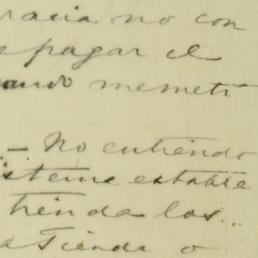 racia no con
epagar el
ando memeti
– No entiendo
isteme estable
tienda los..
a Tienda o